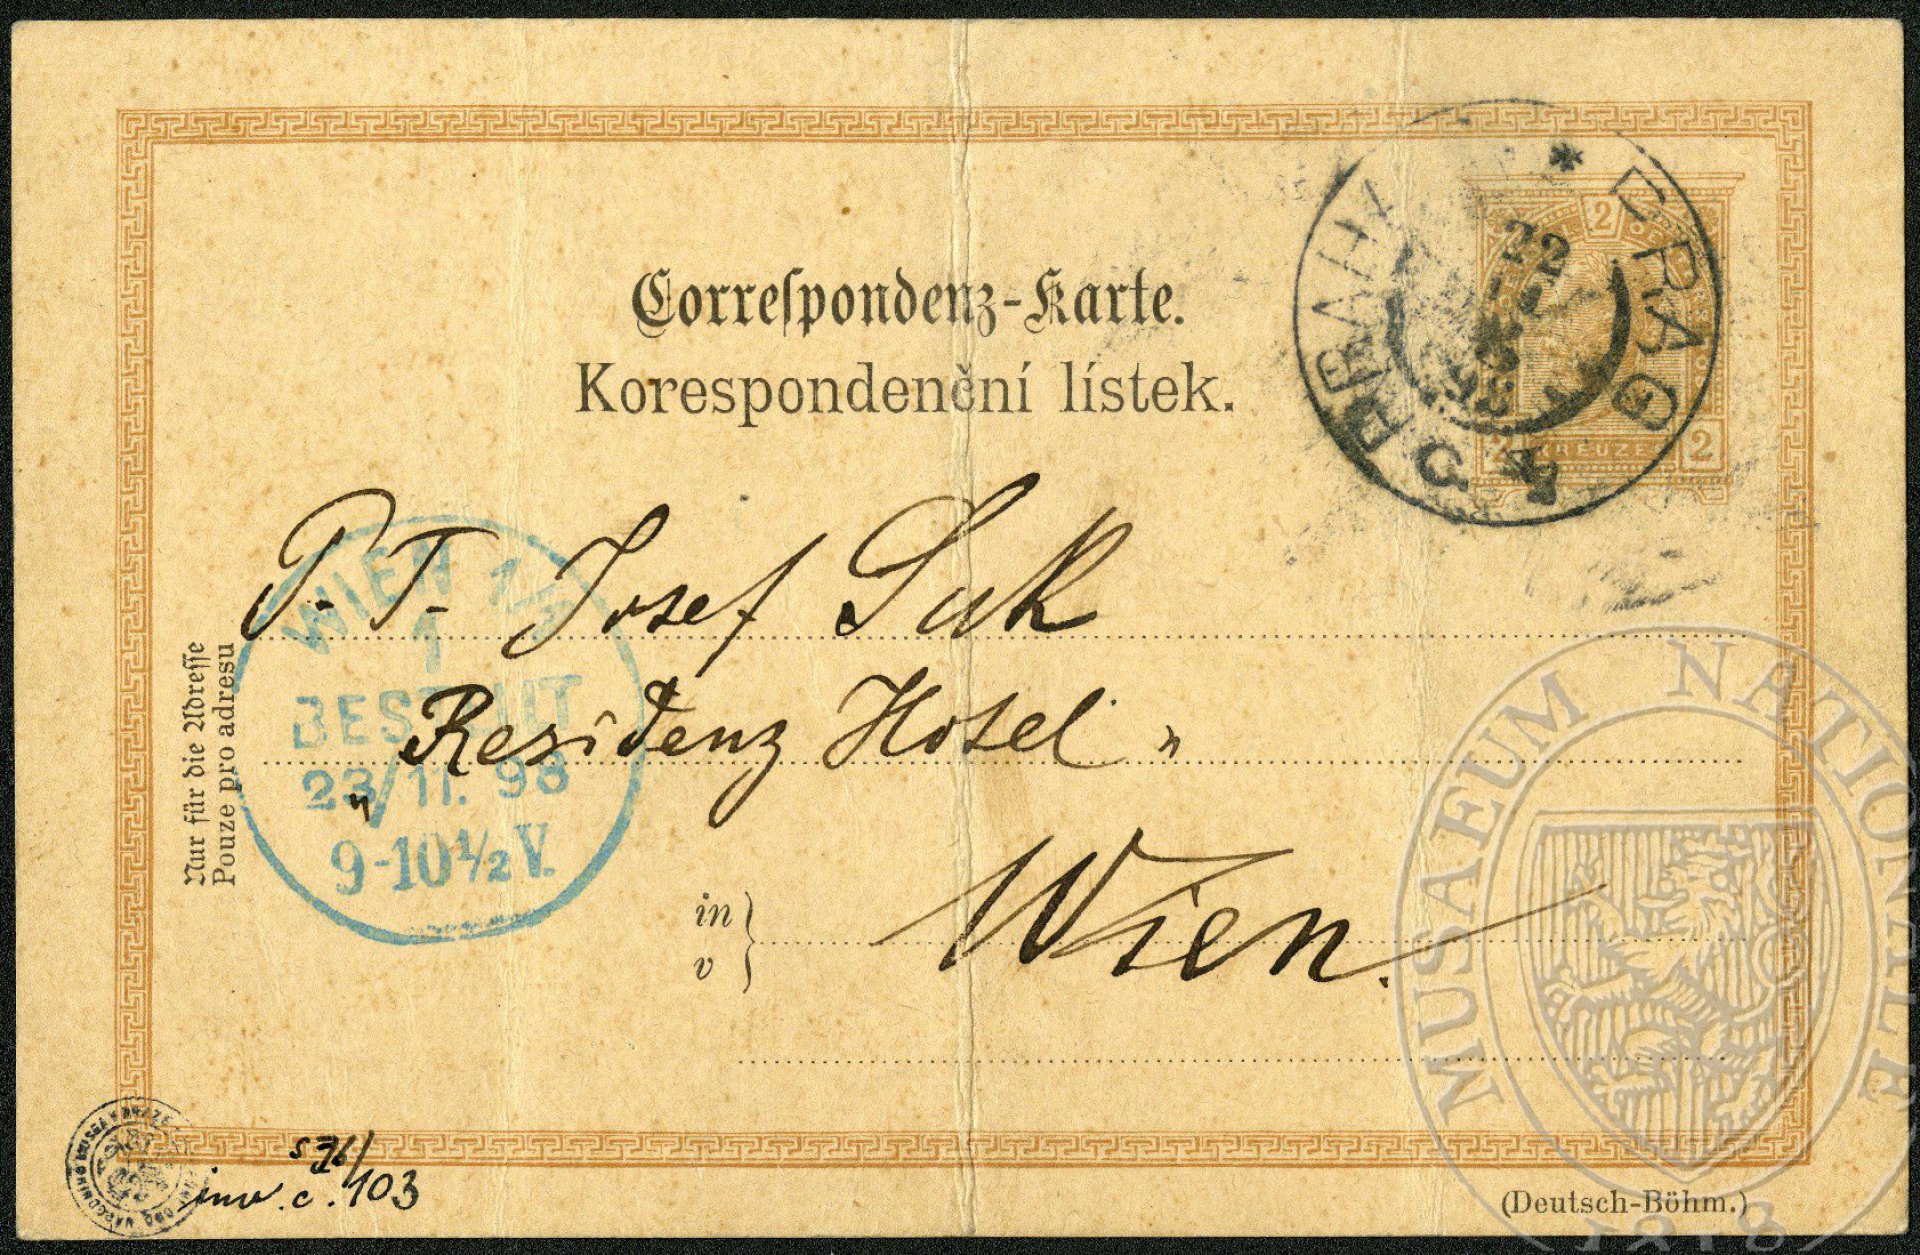 Correspondenz-Karte.
Korespondenční lístek.
2
2 KREUZER 2
PRAG
PRAHA
22
98
P. T. Josef Suk
Residenz Hotel "
in
v
Wien.
WIEN 1/1
1
BESTELLT
23/11. 98
9-10½V.
Nur für die Adresse
Pouze pro adresu
inv. č. 103
(Deutsch-Böhm.)
MUSAEUM NATIONALE
1818